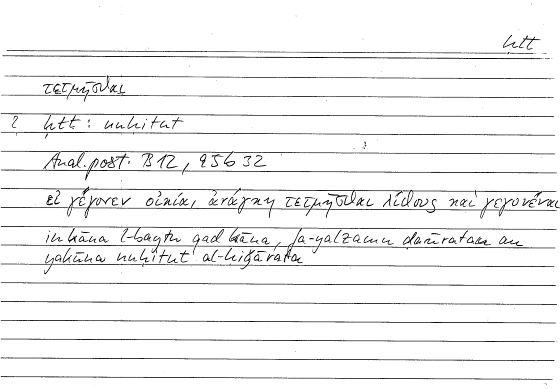 ḥtt
τετμῆσθαι
? ḥtt : nuḥitat
Anal. post. B 12, 95b 32
εἰ γέγονεν οἰκία, ἀνάγκη τετμῆσθαι λίθους καὶ γεγονέναι
in kāna l-baytu qad kāna, fa-yalzamu ḍarūratan an
yakūna nuḥitat al-ḥiǧāratu